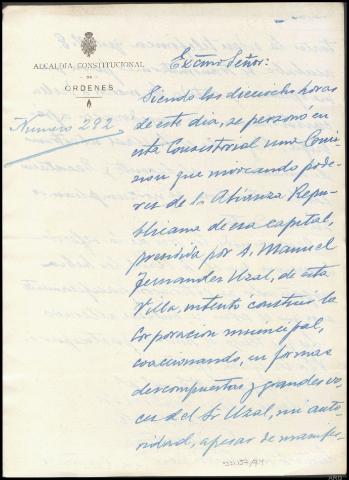 ALCALDIA CONSTITUCIONAL
DE
ORDENES
Numero 292
Excmo Señor:
Siendo las dieciocho horas
de este dia, se personó en
esta Consistorial una Comi-
sion que invocando pode-
res de la Alianza Repu-
blicana de esa capital,
presidida por D. Manuel
Fernandez Uzal, de esta
Villa, intentó constituir la
Corporacion municipal,
coaccionando, en formas
descompuestas y grandes vo-
ces del Sr Uzal, mi auto-
ridad, apesar de manifes-